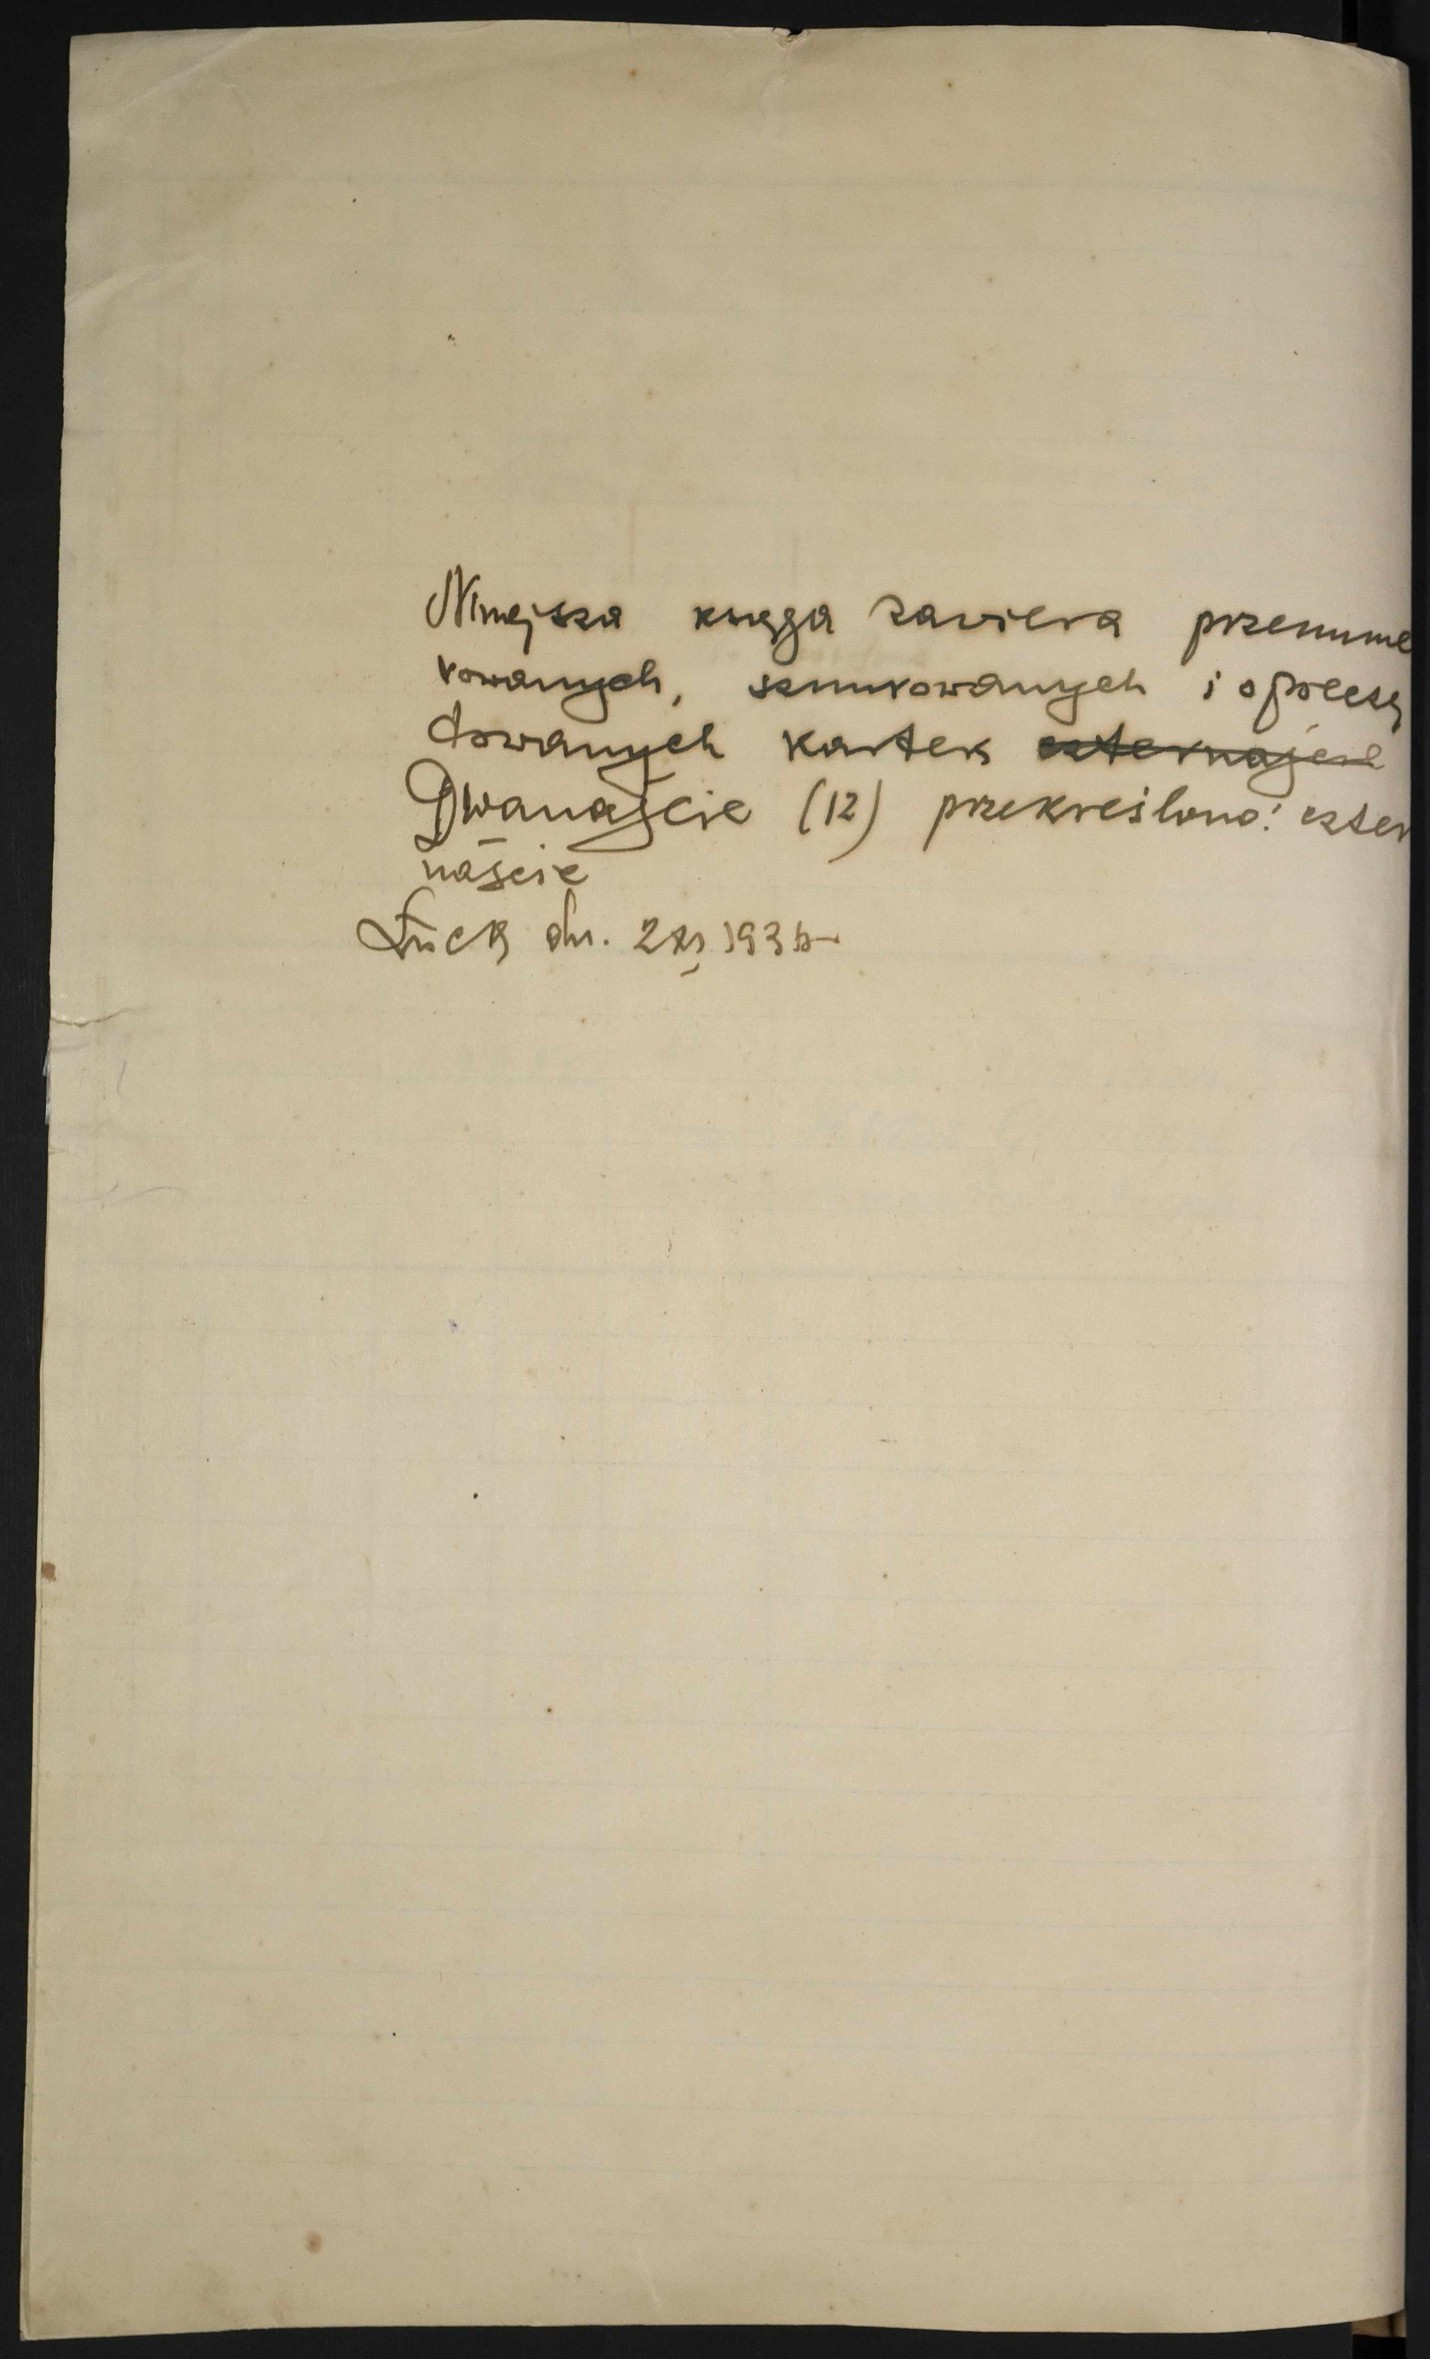 Niniejsza księga zawiera przenume
rowanych, sznurowanych i opieczę
towanych kartek czternaście
Dwanaście (12) przekreślono: czter
naście
Łuck dn.